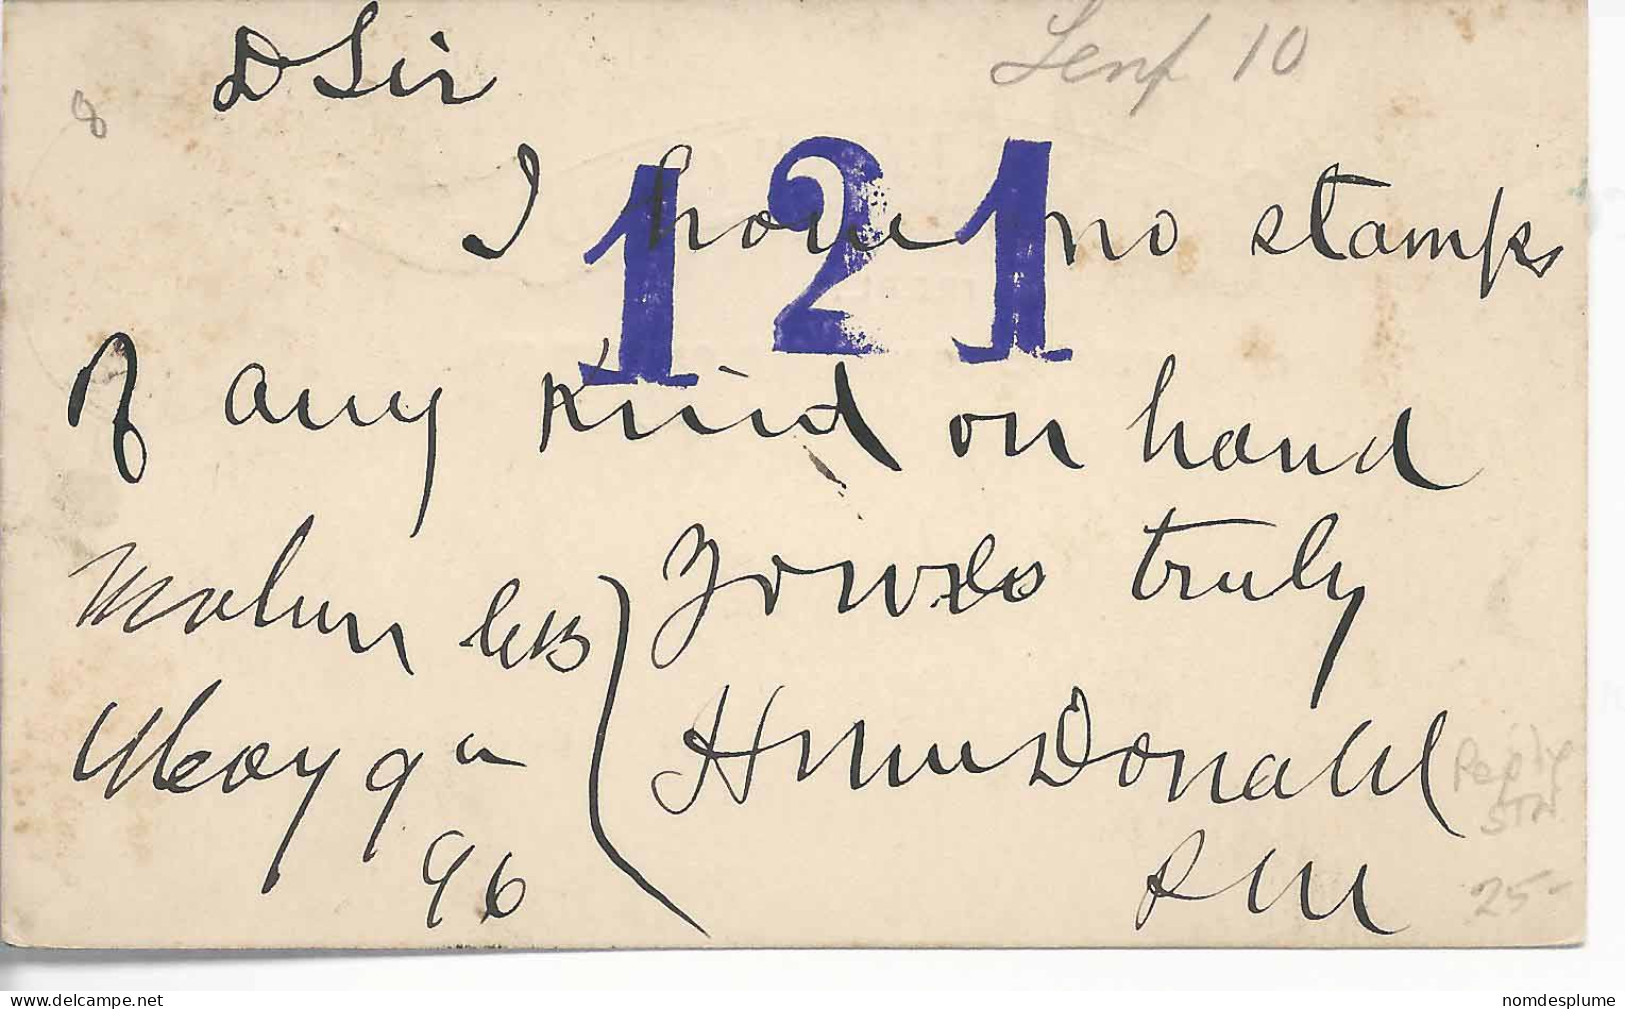 D Sir
Senf 10
8
121
I have no stamps
of any kind on hand
Yours truly
Mabou CB
May 9th
96
H McDonald
P M
Reply
STN
25-
delcampe.net
nomdesplume